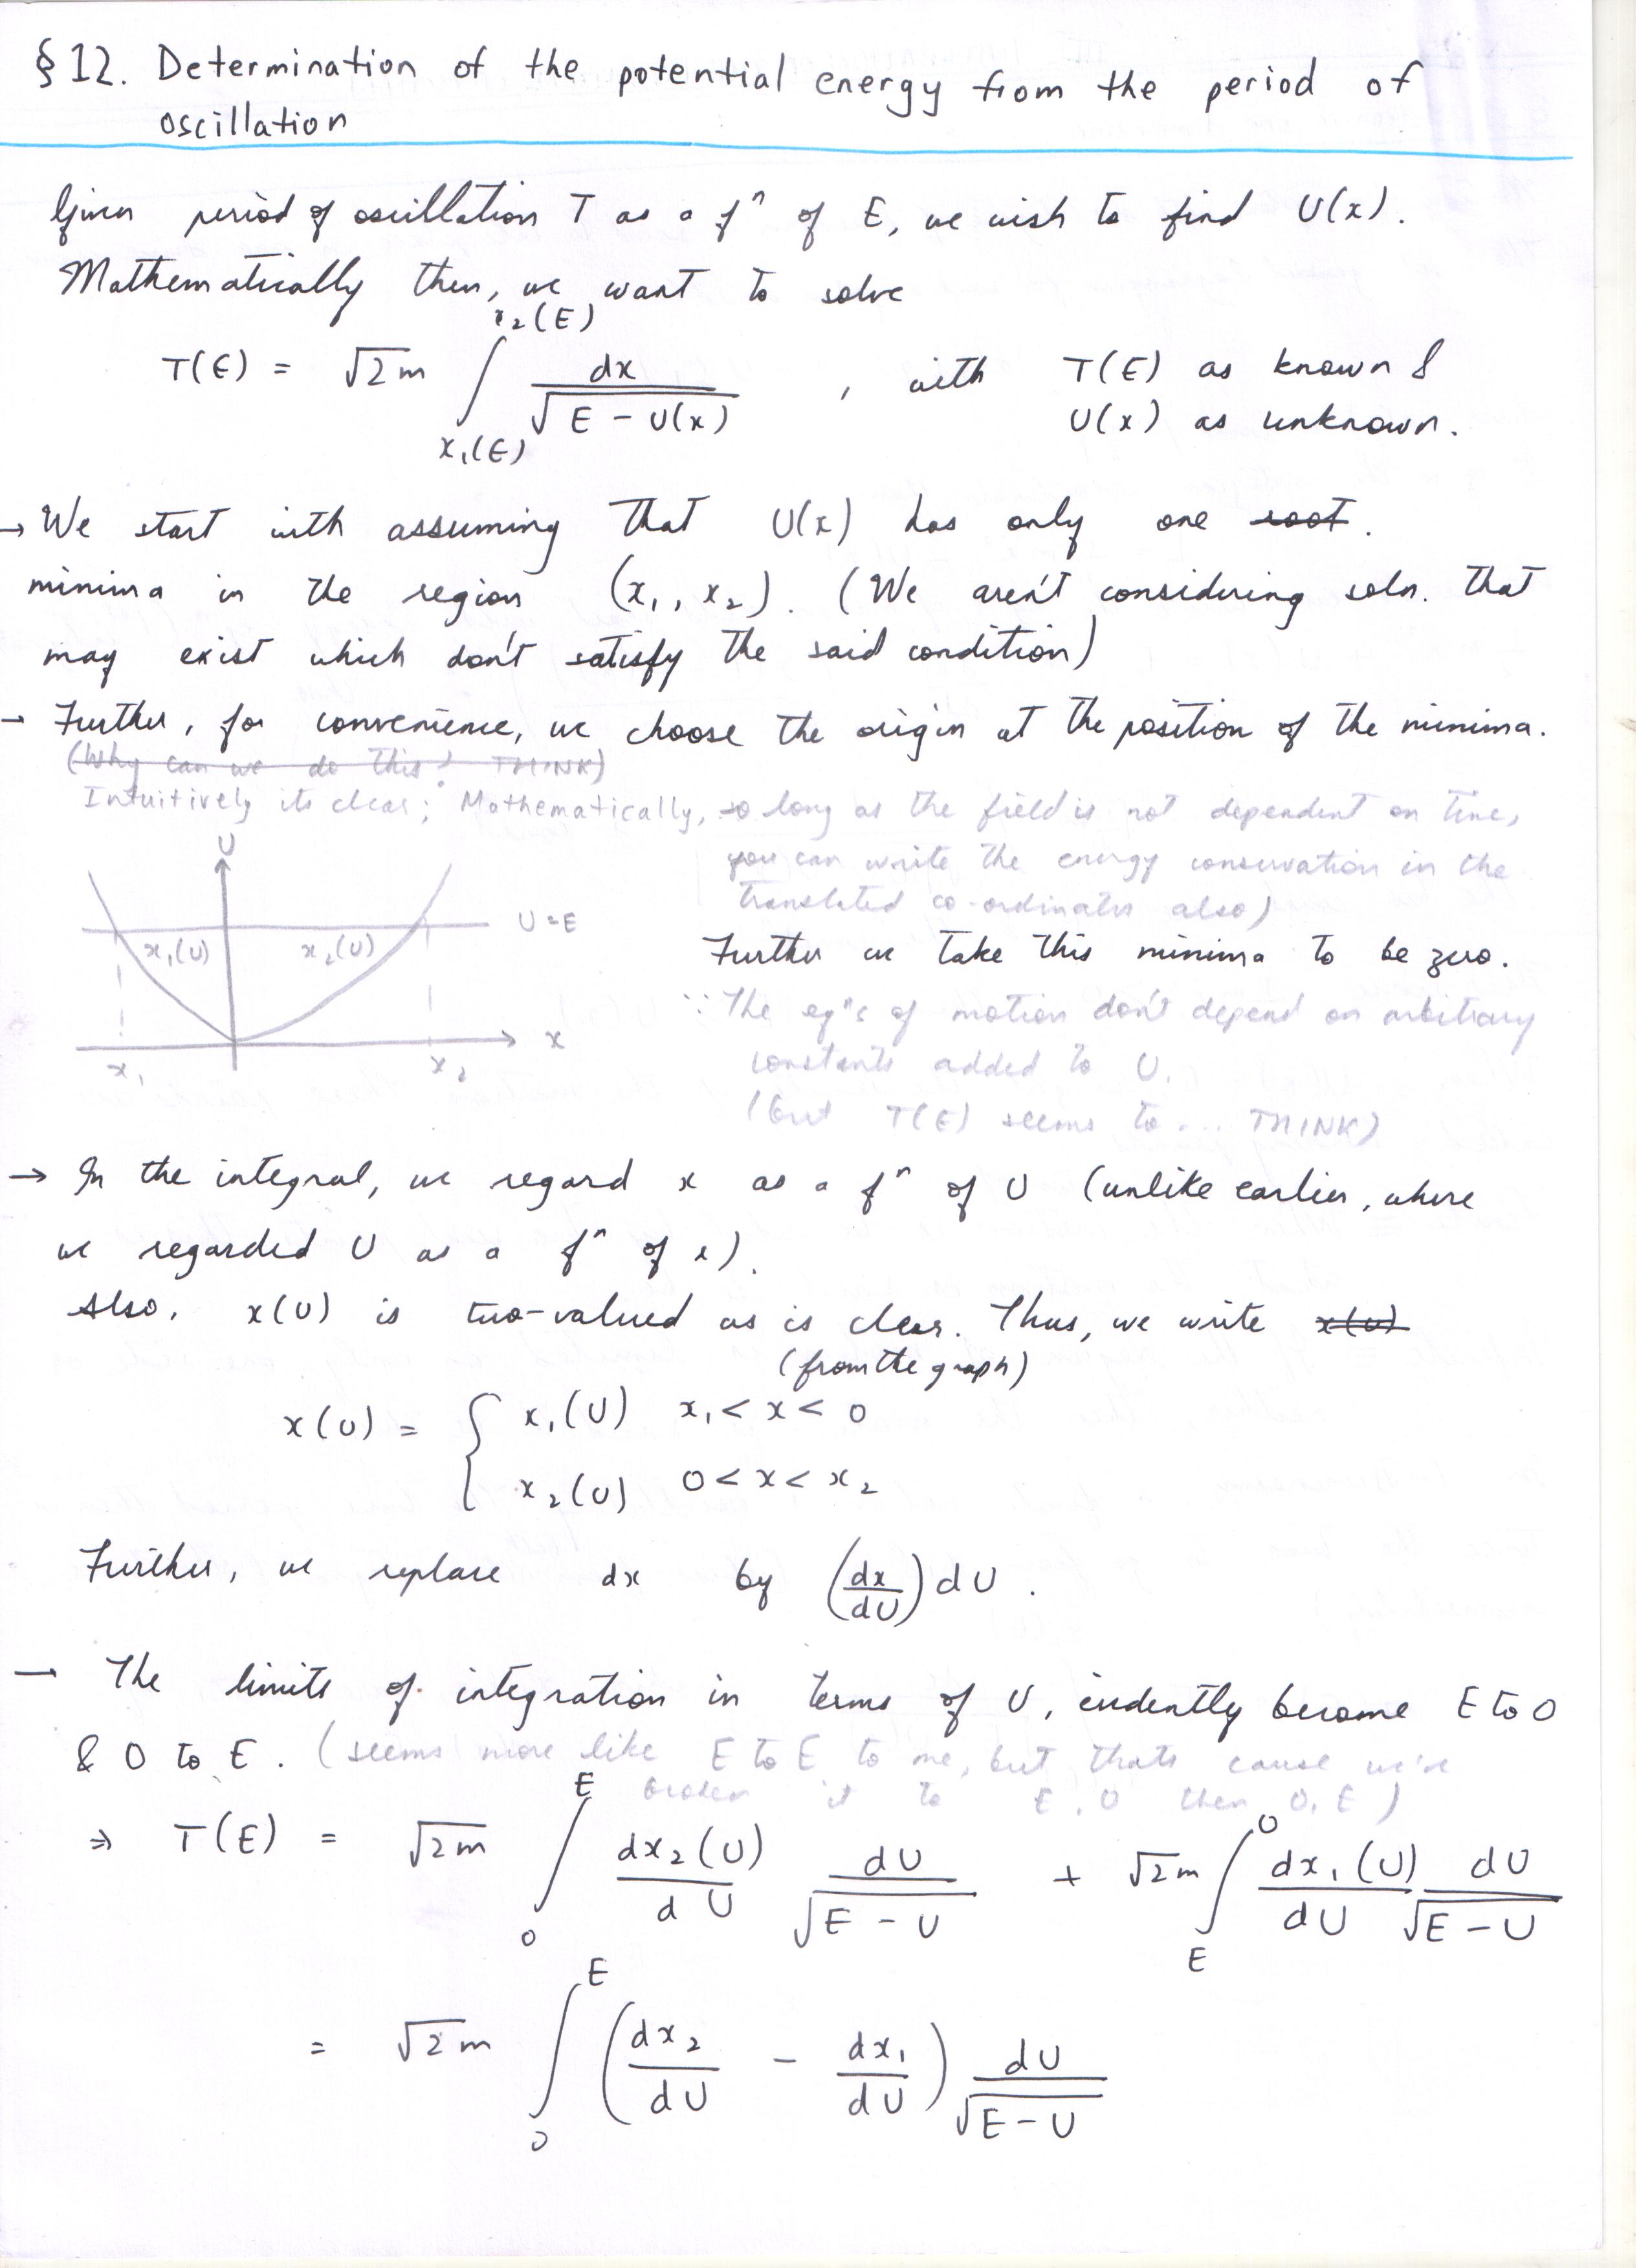 §12. Determination of the potential energy from the period of
oscillation
Given period of oscillation T as a fⁿ of E, we wish to find U(x).
Mathematically then, we want to solve
T(E) = √2m ∫_{x₁(E)}^{x₂(E)} dx/√(E - U(x)) , with T(E) as known &
U(x) as unknown.
→ We start with assuming that U(x) has only one ~~root~~.
minima in the region (x₁, x₂). (We aren't considering soln. that
may exist which don't satisfy the said condition)
→ Further, for convenience, we choose the origin at the position of the minima.
~~(Why can we do this? THINK)~~
Intuitively its clear; Mathematically, so long as the field is not dependent on time,
you can write the energy conservation in the
translated co-ordinates also)
U
U=E
x₁(U) x₂(U)
x
x₁ x₂
Further we take this minima to be zero.
∵ The eqⁿs of motion don't depend on arbitrary
constants added to U.
(but T(E) seems to... THINK)
→ In the integral, we regard x as a fⁿ of U (unlike earlier, where
we regarded U as a fⁿ of x).
Also, x(U) is two-valued as is clear. Thus, we write ~~x(U)~~
(from the graph)
x(U) = { x₁(U) x₁ < x < 0
x₂(U) 0 < x < x₂
Further, we replace dx by (dx/dU) dU.
→ The limits of integration in terms of U, evidently become E to 0
& 0 to E. (seems more like E to E to me, but thats cause we've
broken it to E,0 then 0,E)
⇒ T(E) = √2m ∫_0^E dx₂(U)/dU dU/√(E - U) + √2m ∫_E^0 dx₁(U)/dU dU/√(E - U)
= √2m ∫_0^E (dx₂/dU - dx₁/dU) dU/√(E - U)